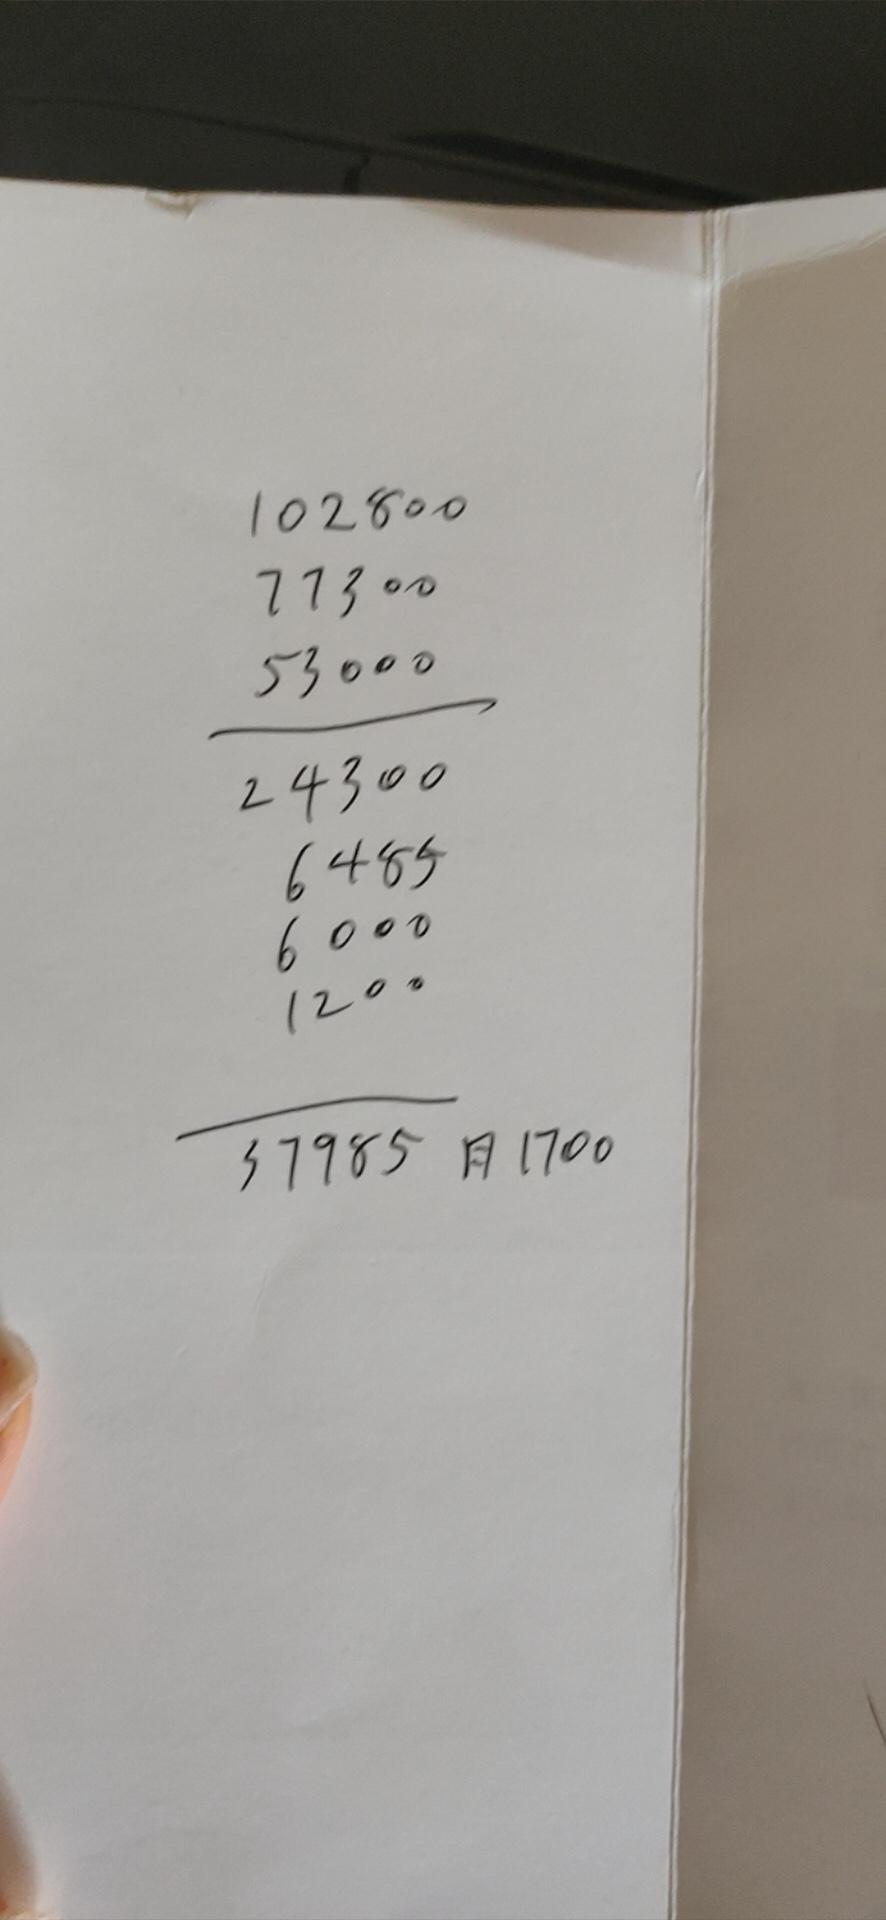 102800
77300
53000
24300
6485
6000
1200
37985 月1700